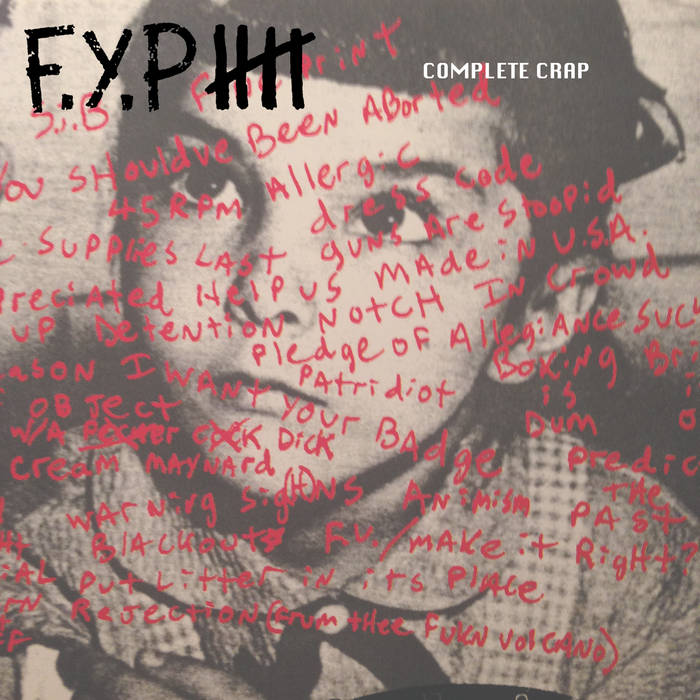 F.Y.P
COMPLETE CRAP
S.I.B Fingerprint
You SHouldve Been ABorted
45 RPM Allergic dress code
SuPPliEs LAST guns Are Stoopid
preciAted HElP US MAde iN U.S.A.
UP DeTENtioN NotCH In Crowd
Pledge oF AllegiANce SUC
ason I WANT PAtridiot Boxing
OBJect your BAdge is Dum
W/A CoCK DicK Predic
CReAM MAYNArd THe
WArNiNg Sig(H)NS ANimism PASt
BlAcKouts F.U. mAKe it RigHt?
Put Litter in its PlAce
RejectioN (Frum tHee FuKN volCANo)